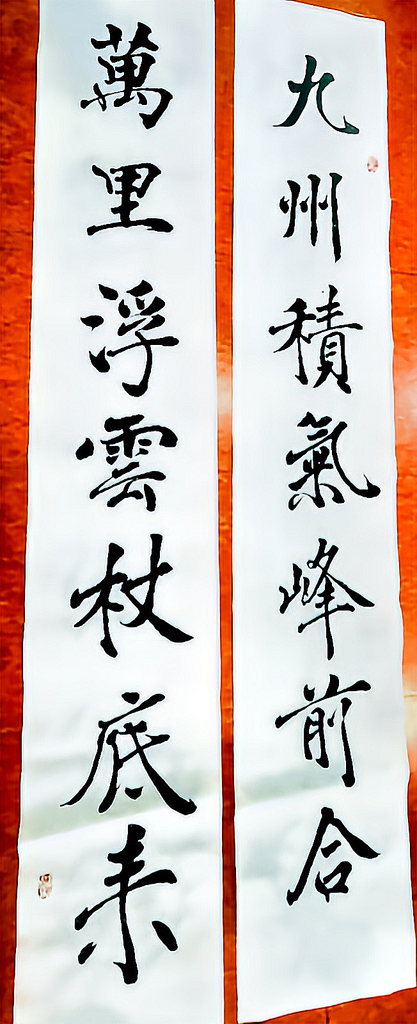 九州積氣峰前合
萬里浮雲杖底来